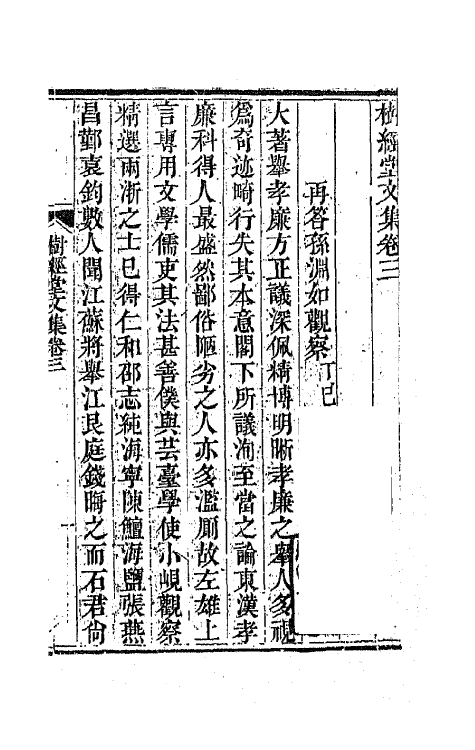 樹經堂文集卷三
再答孫淵如觀察丁巳
大著舉孝廉方正議深佩精博明晰孝廉之舉人多視
爲奇迹畸行失其本意閣下所議洵至當之論東漢孝
廉科得人最盛然鄙俗陋劣之人亦多濫厠故左雄上
言專用文學儒吏其法甚善僕與芸臺學使小峴觀察
精選兩浙之士已得仁和邵志純海寧陳鱣海鹽張燕
昌鄞袁鈞數人聞江蘇將舉江艮庭錢晦之而石君尙
樹經堂文集卷三